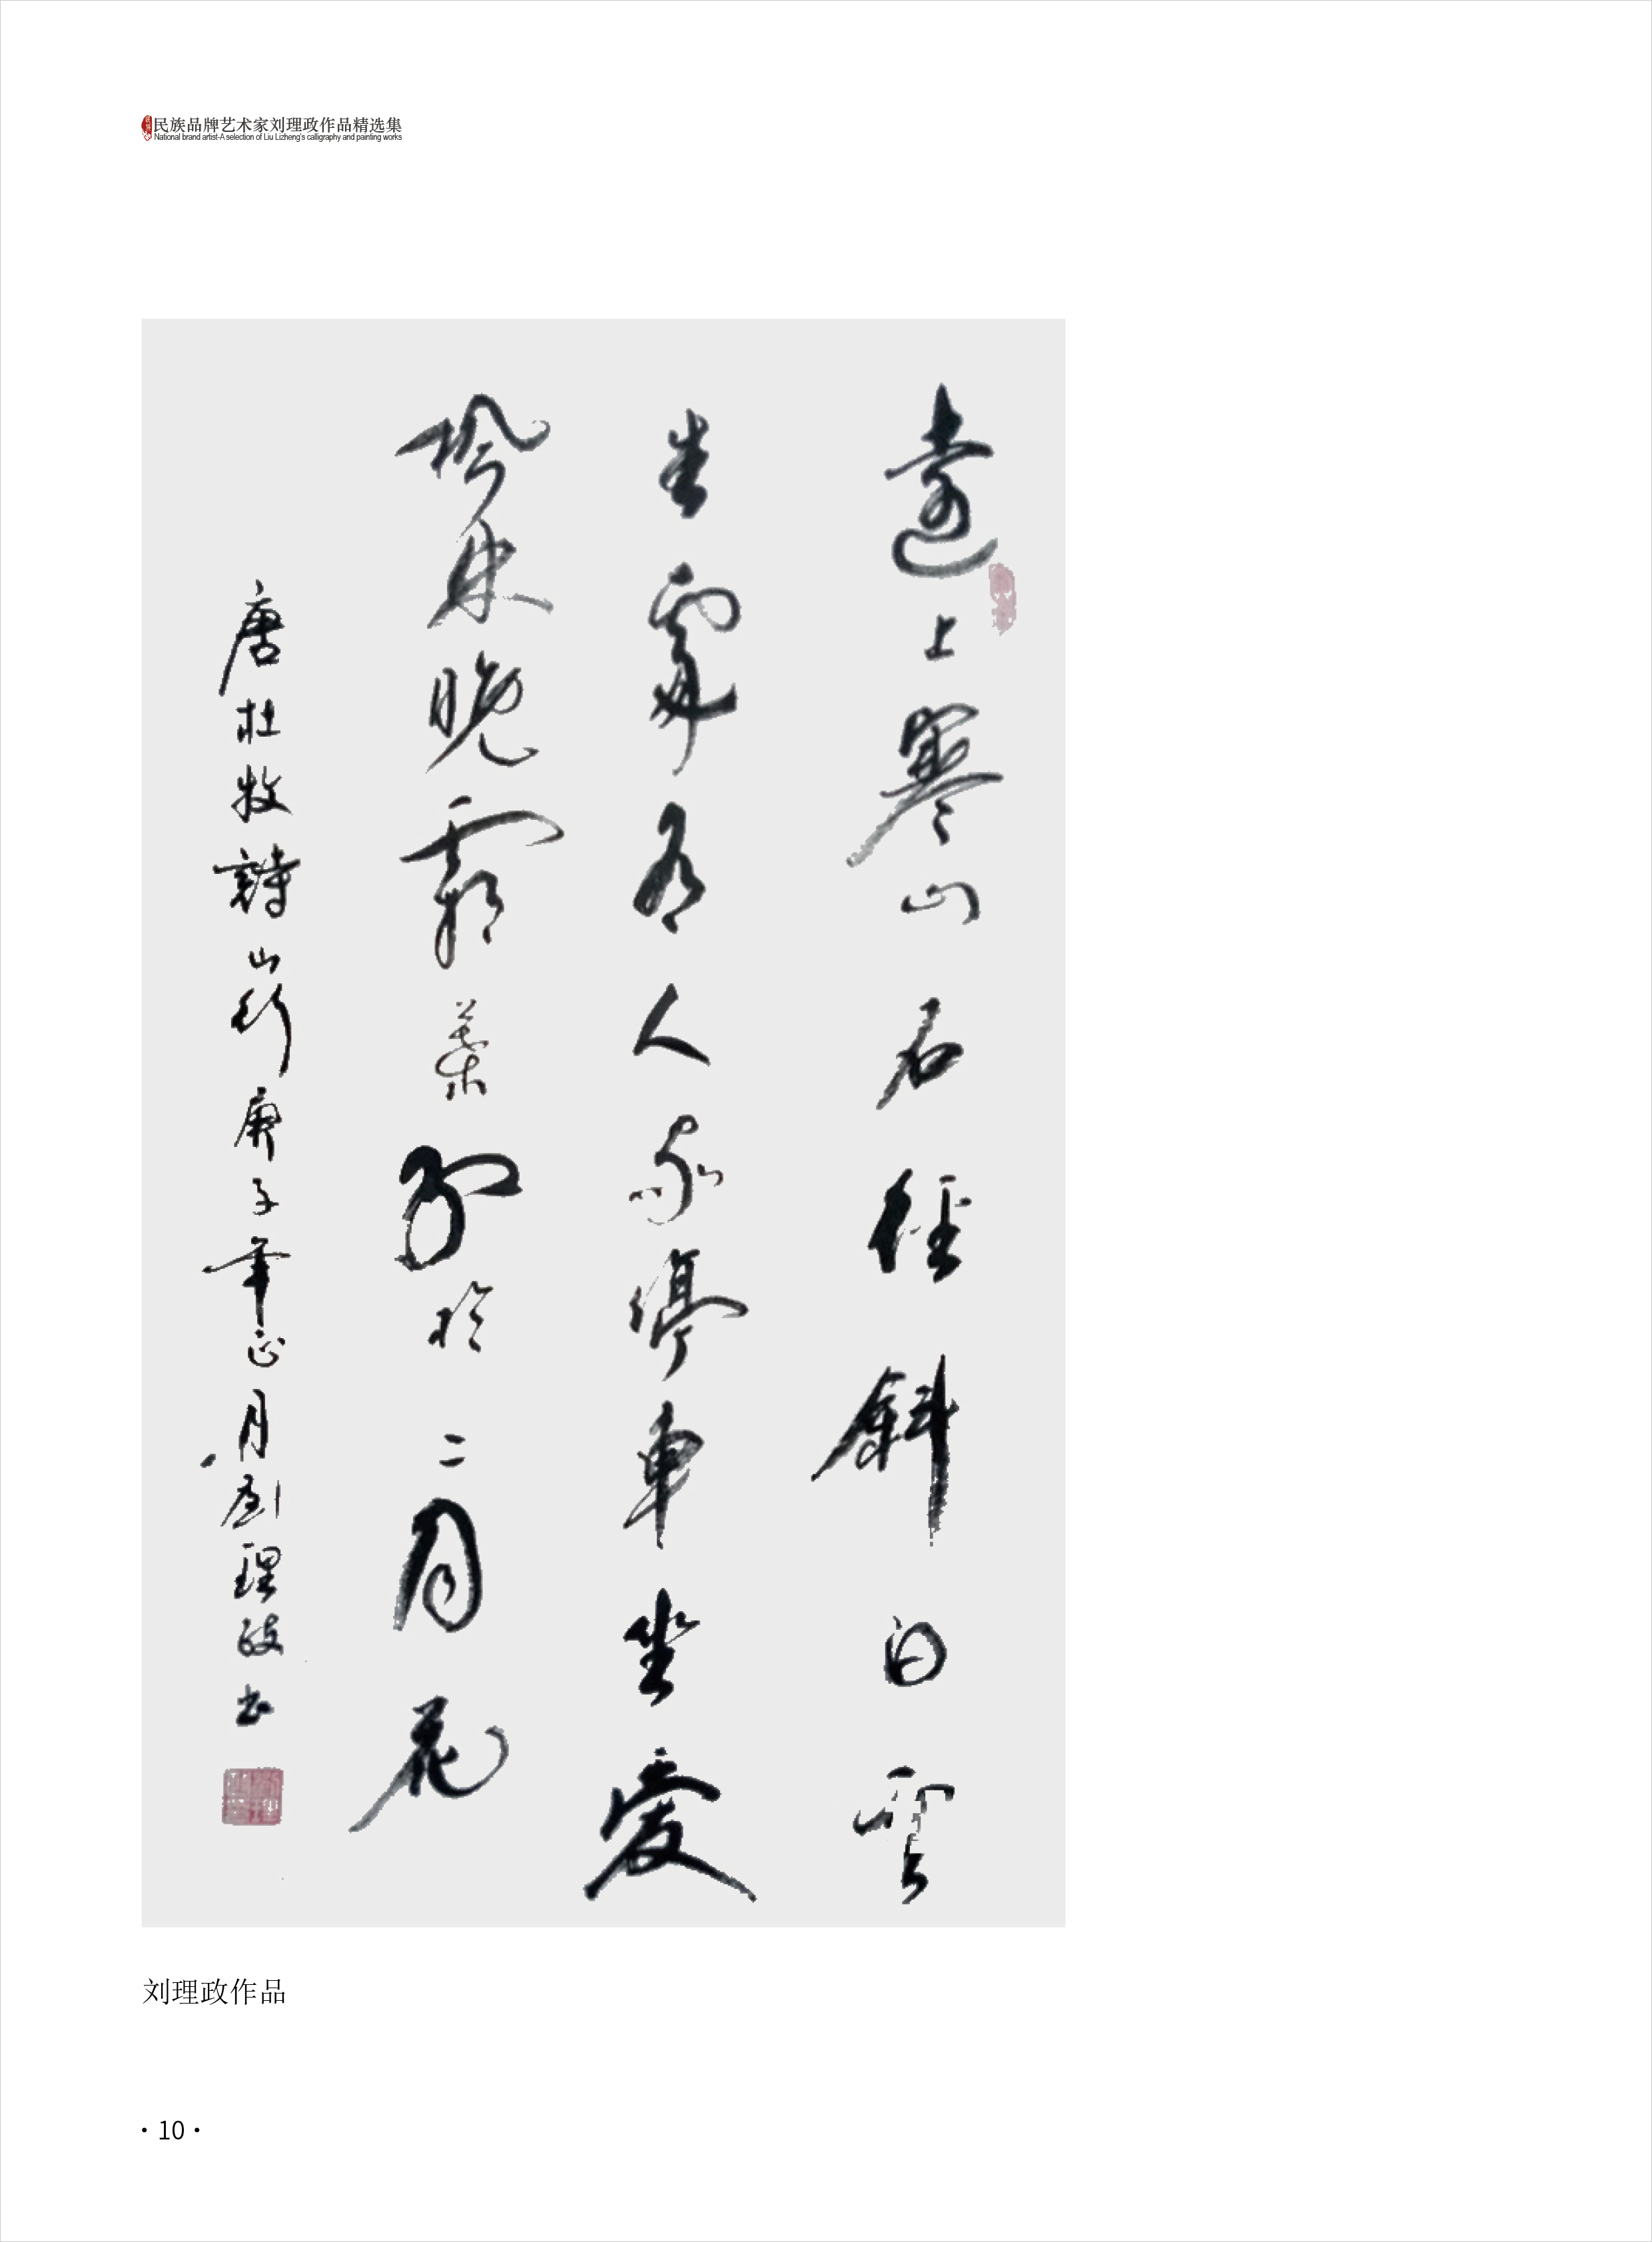 民族品牌艺术家刘理政作品精选集
National brand artist-A selection of Liu Lizheng's calligraphy and painting works
遠上寒山石徑斜白雲
生處有人家停車坐愛
楓林晚霜葉紅於二月花
唐杜牧詩山行庚子年正月劉理政書
刘理政作品
·10·